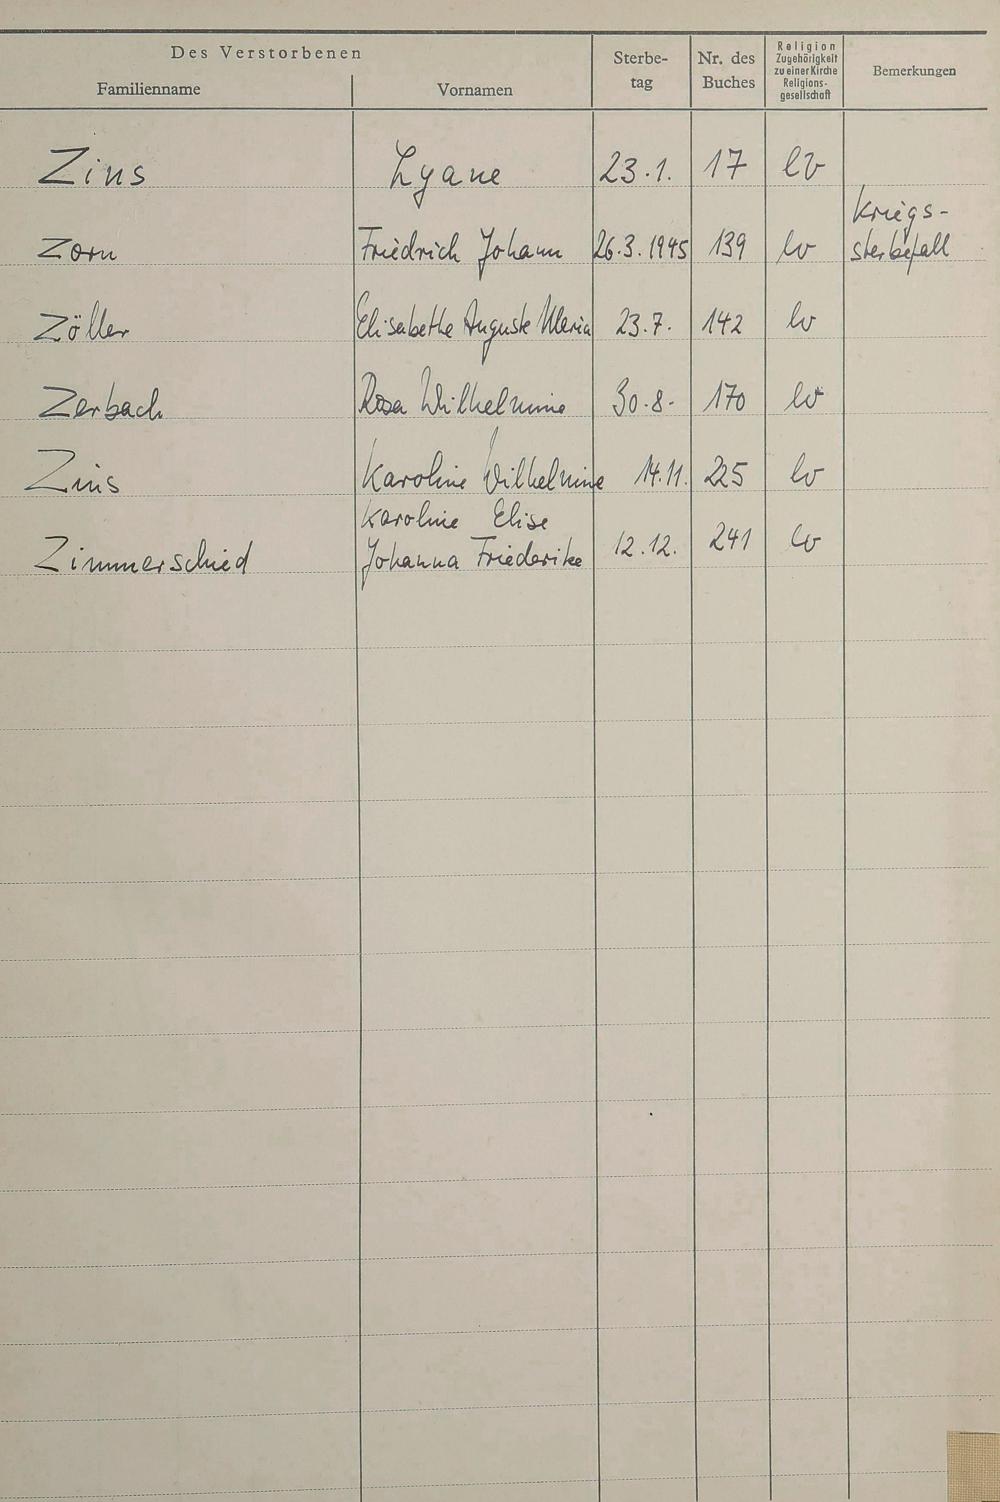 Des Verstorbenen
Familienname
Vornamen
Sterbe-
tag
Nr. des
Buches
Religion
Zugehörigkeit
zu einer Kirche
Religions-
gesellschaft
Bemerkungen
Zins Lyane 23.1. 17 ev
Kriegs-
Zorn Friedrich Johann 26.3.1945 139 ev sterbefall
Zöller Elisabethe Auguste Maria 23.7. 142 ev
Zerbach Rosa Wilhelmine 30.8. 170 ev
Zins Karoline Wilhelmine 14.11. 225 ev
Karoline Elise
Zimmerschied Johanna Friederike 12.12. 241 ev